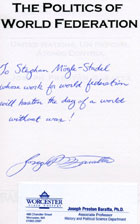 The Politics of
World Federation
United Nations, UN Reform,
Atomic Control
To Stephan Mögle-Stadel
whose work for world federation
will hasten the day of a world
without war!
Joseph P. Baratta
WORCESTER
Joseph Preston Baratta, Ph.D.
Associate Professor
History and Political Science Department
486 Chandler Street
Worcester, MA